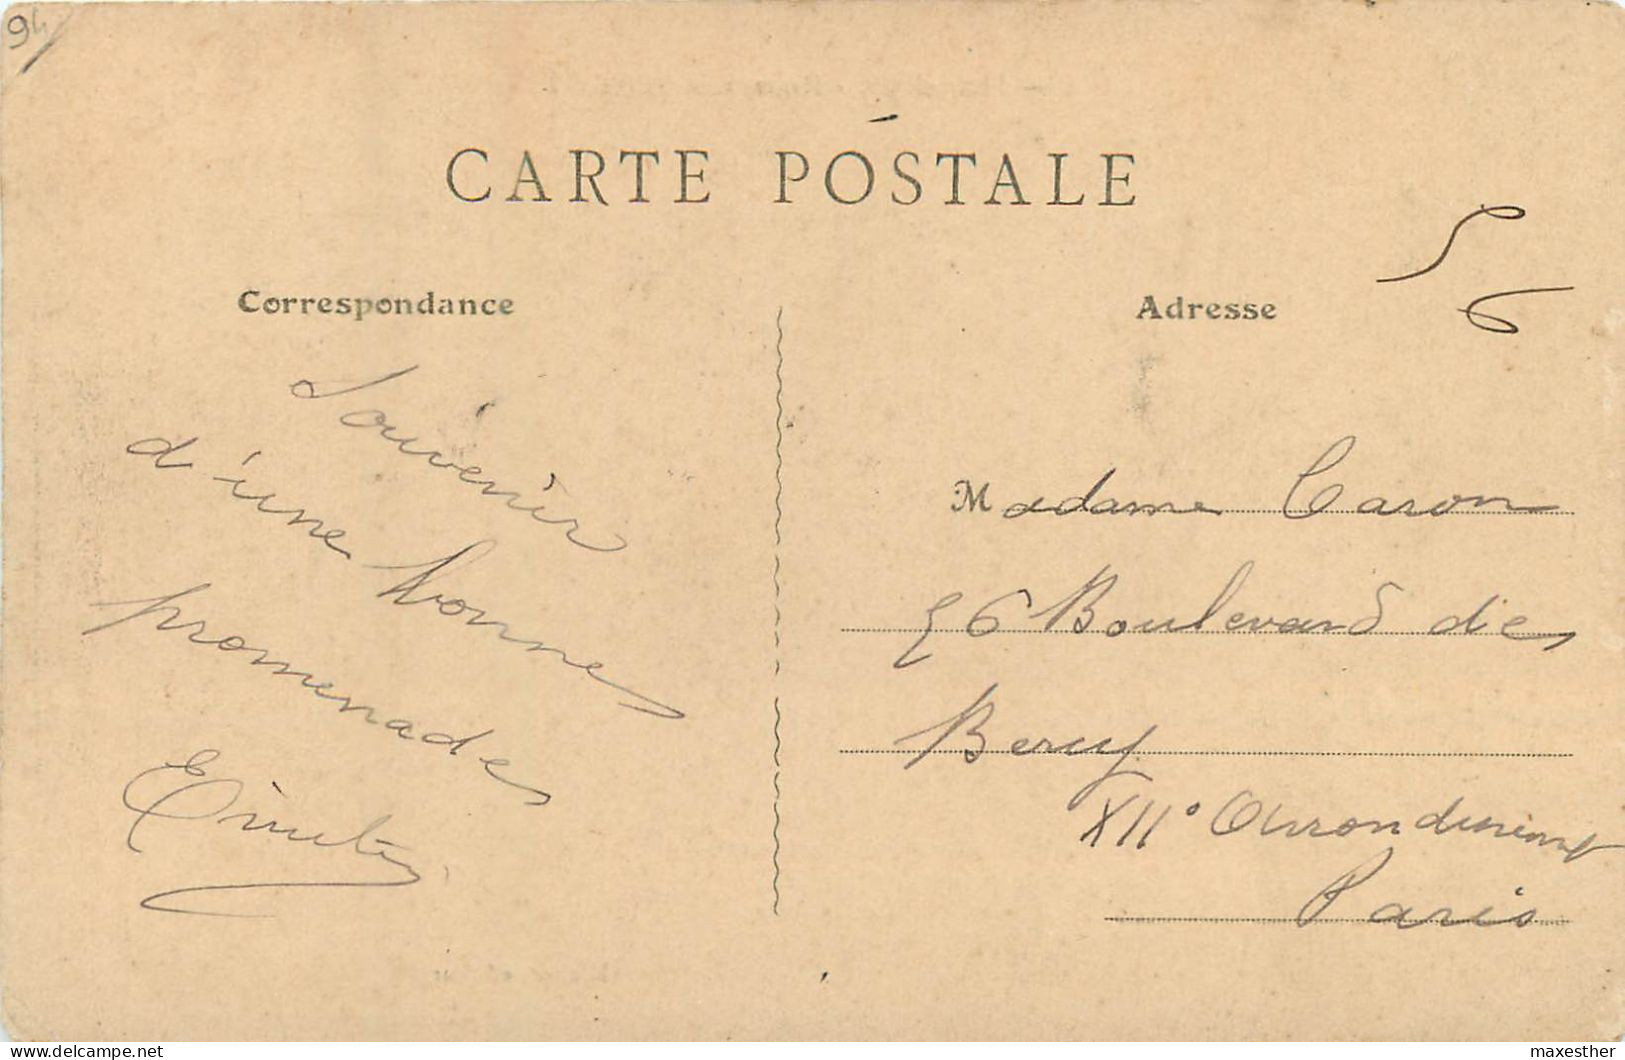 94
CARTE POSTALE
Correspondance
Souvenir
d'une bonne
promenade
Adresse
5
6
Madame Caron
56 Boulevard de
Bercy
XII° Arrondiment
Paris
delcampe.net
maxesther